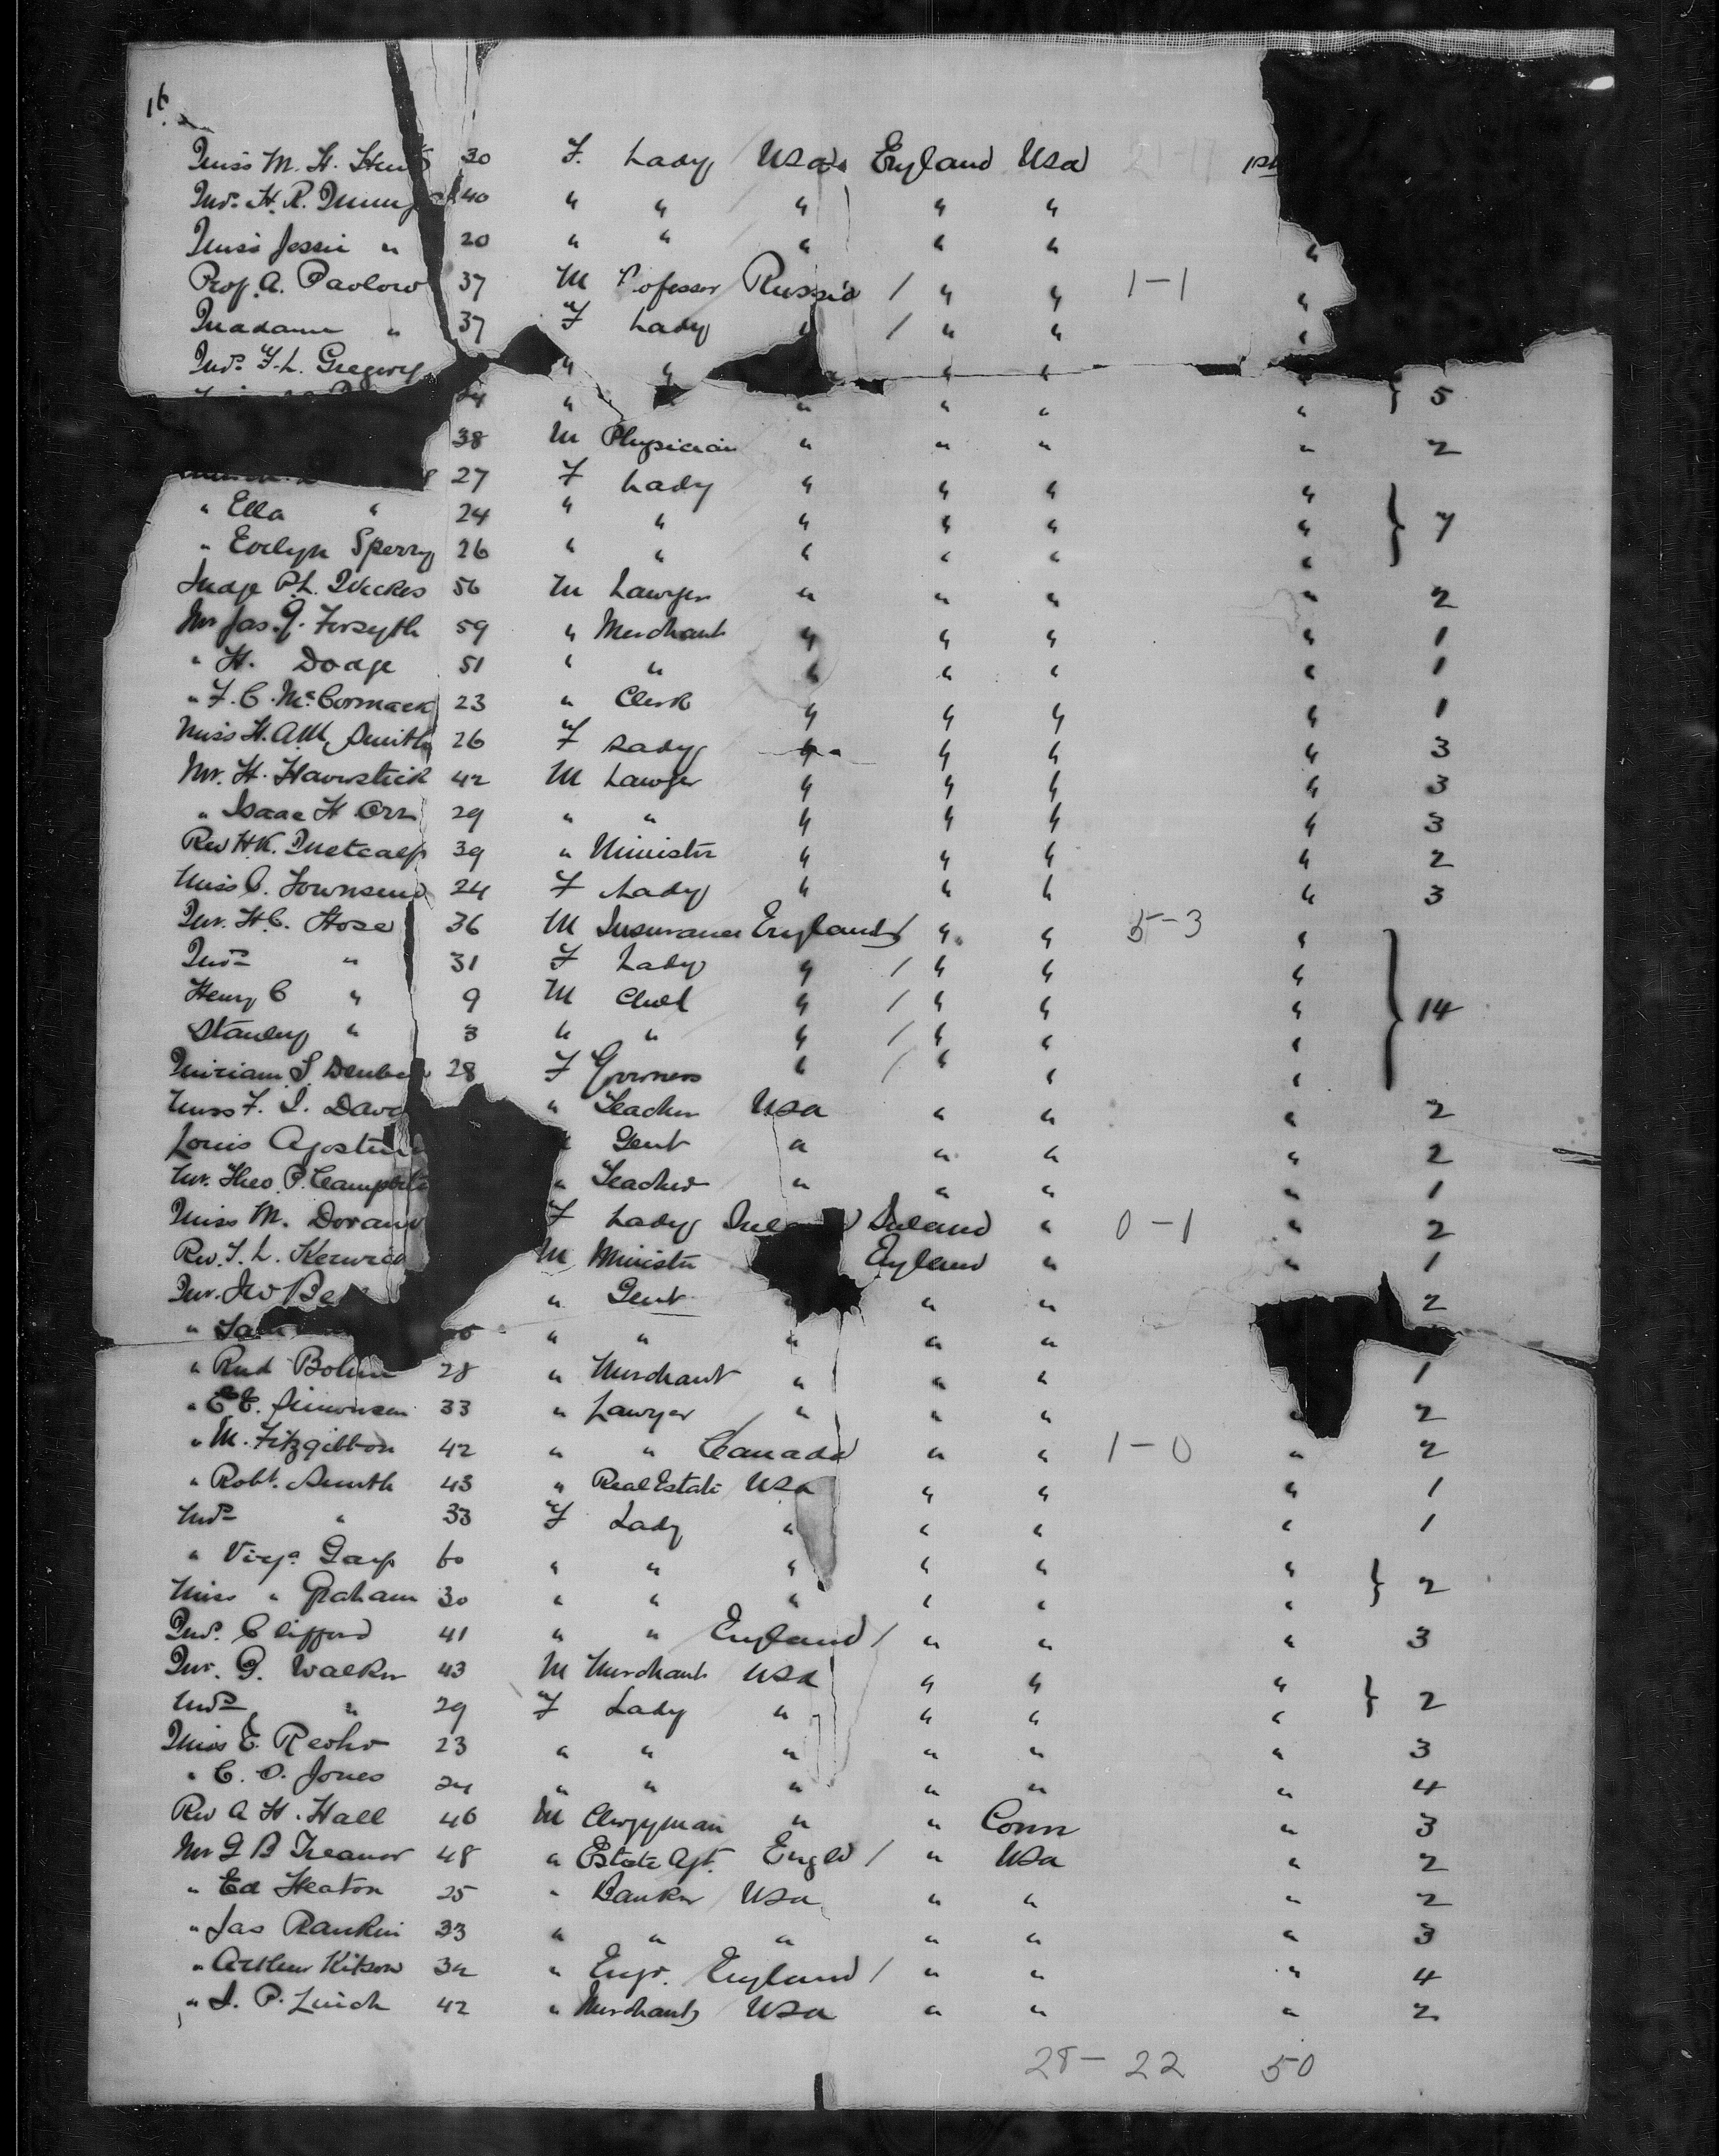 16
Miss M. H. 30 F. Lady USA England USA 1st
Mrs. H. R. 40 " " " " "
Miss Jessie " 20 " " " " " "
Prof. A. Pavlow 37 M Professor Russia / " " 1-1 "
Madame " 37 F Lady " / " " "
Mrs. F. L. Gregory " " " " " } 5
34 " " " " "
38 M Physician " " " " 2
27 F Lady " " " "
" Ella " 24 " " " " " " } 7
" Evelyn Sperry 26 " " " " " "
Judge P. L. 56 M Lawyer " " " " 2
Mr Jas. G. Forsyth 59 " Merchant " " " " 1
" H. Dodge 51 " " " " " " 1
" F. C. McCormack 23 " Clerk " " " " 1
Miss H. A. M. Smith 26 F Lady " " " " 3
Mr. H. Haverstick 42 M Lawyer " " " " 3
" Isaac H Orr 29 " " " " " " 3
Rev H. K. Metcalf 39 " Minister " " " " 2
Miss C. Townsend 24 F Lady " " " " 3
Mr. H. C. Hose 36 M Insurance England / " " 5-3 "
Mrs " 31 F Lady " / " " "
Henry C " 9 M Child " / " " " } 14
Stanley " 3 " " " / " " "
Miriam S 28 F Governess " / " " "
Miss F. I. " Teacher USA " " " 2
Louis Gent " " " " 2
Mr. Theo. P. Campbell " Teacher " " " " 1
Miss M. Doran F Lady Ireland " 0-1 " 2
Rev. T. L. M Minister England " " 1
Mr. " Gent " " 2
" " " " " "
" Rud Bohm 28 " Merchant " " " 1
" E. E. Simonsen 33 " Lawyer " " " " 2
" M. Fitzgibbon 42 " " Canada " " 1-0 " 2
" Robt. Smith 43 " Real Estate USA " " " 1
Mrs " 33 F Lady " " " " 1
" Virga. 60 " " " " " " } 2
Miss " Graham 30 " " " " " "
Mrs. Clifford 41 " " England / " " " 3
Mr. G. Walker 43 M Merchant USA " " " } 2
Mrs " 29 F Lady " " " "
Miss E. 23 " " " " " " 3
" C. O. Jones 24 " " " " " " 4
Rev A. H. Hall 46 M Clergyman " " Conn " 3
Mr G B Treanor 48 " Estate Agt. Engld / " USA " 2
" Ed Heaton 25 " Banker USA " " " 2
" Jas Rankin 33 " " " " " " 3
" Arthur Kitson 32 " Engr. England / " " " 4
" J. P. 42 " Merchant USA " " " 2
28 - 22 50